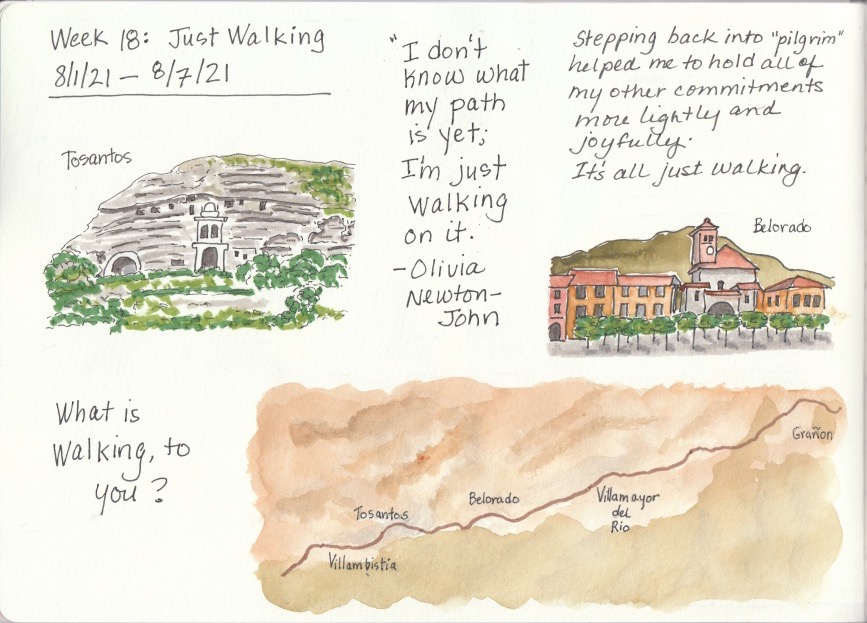 Week 18: Just Walking
8/1/21 – 8/7/21
"I don't
know what
my path
is yet;
I'm just
walking
on it.
-Olivia
Newton-
John
Stepping back into "pilgrim"
helped me to hold all of
my other commitments
more lightly and
joyfully.
It's all just walking.
Tosantos
Belorado
What is
Walking, to
you?
Grañon
Belorado
Villamayor
del
Rio
Tosantos
Villambistia